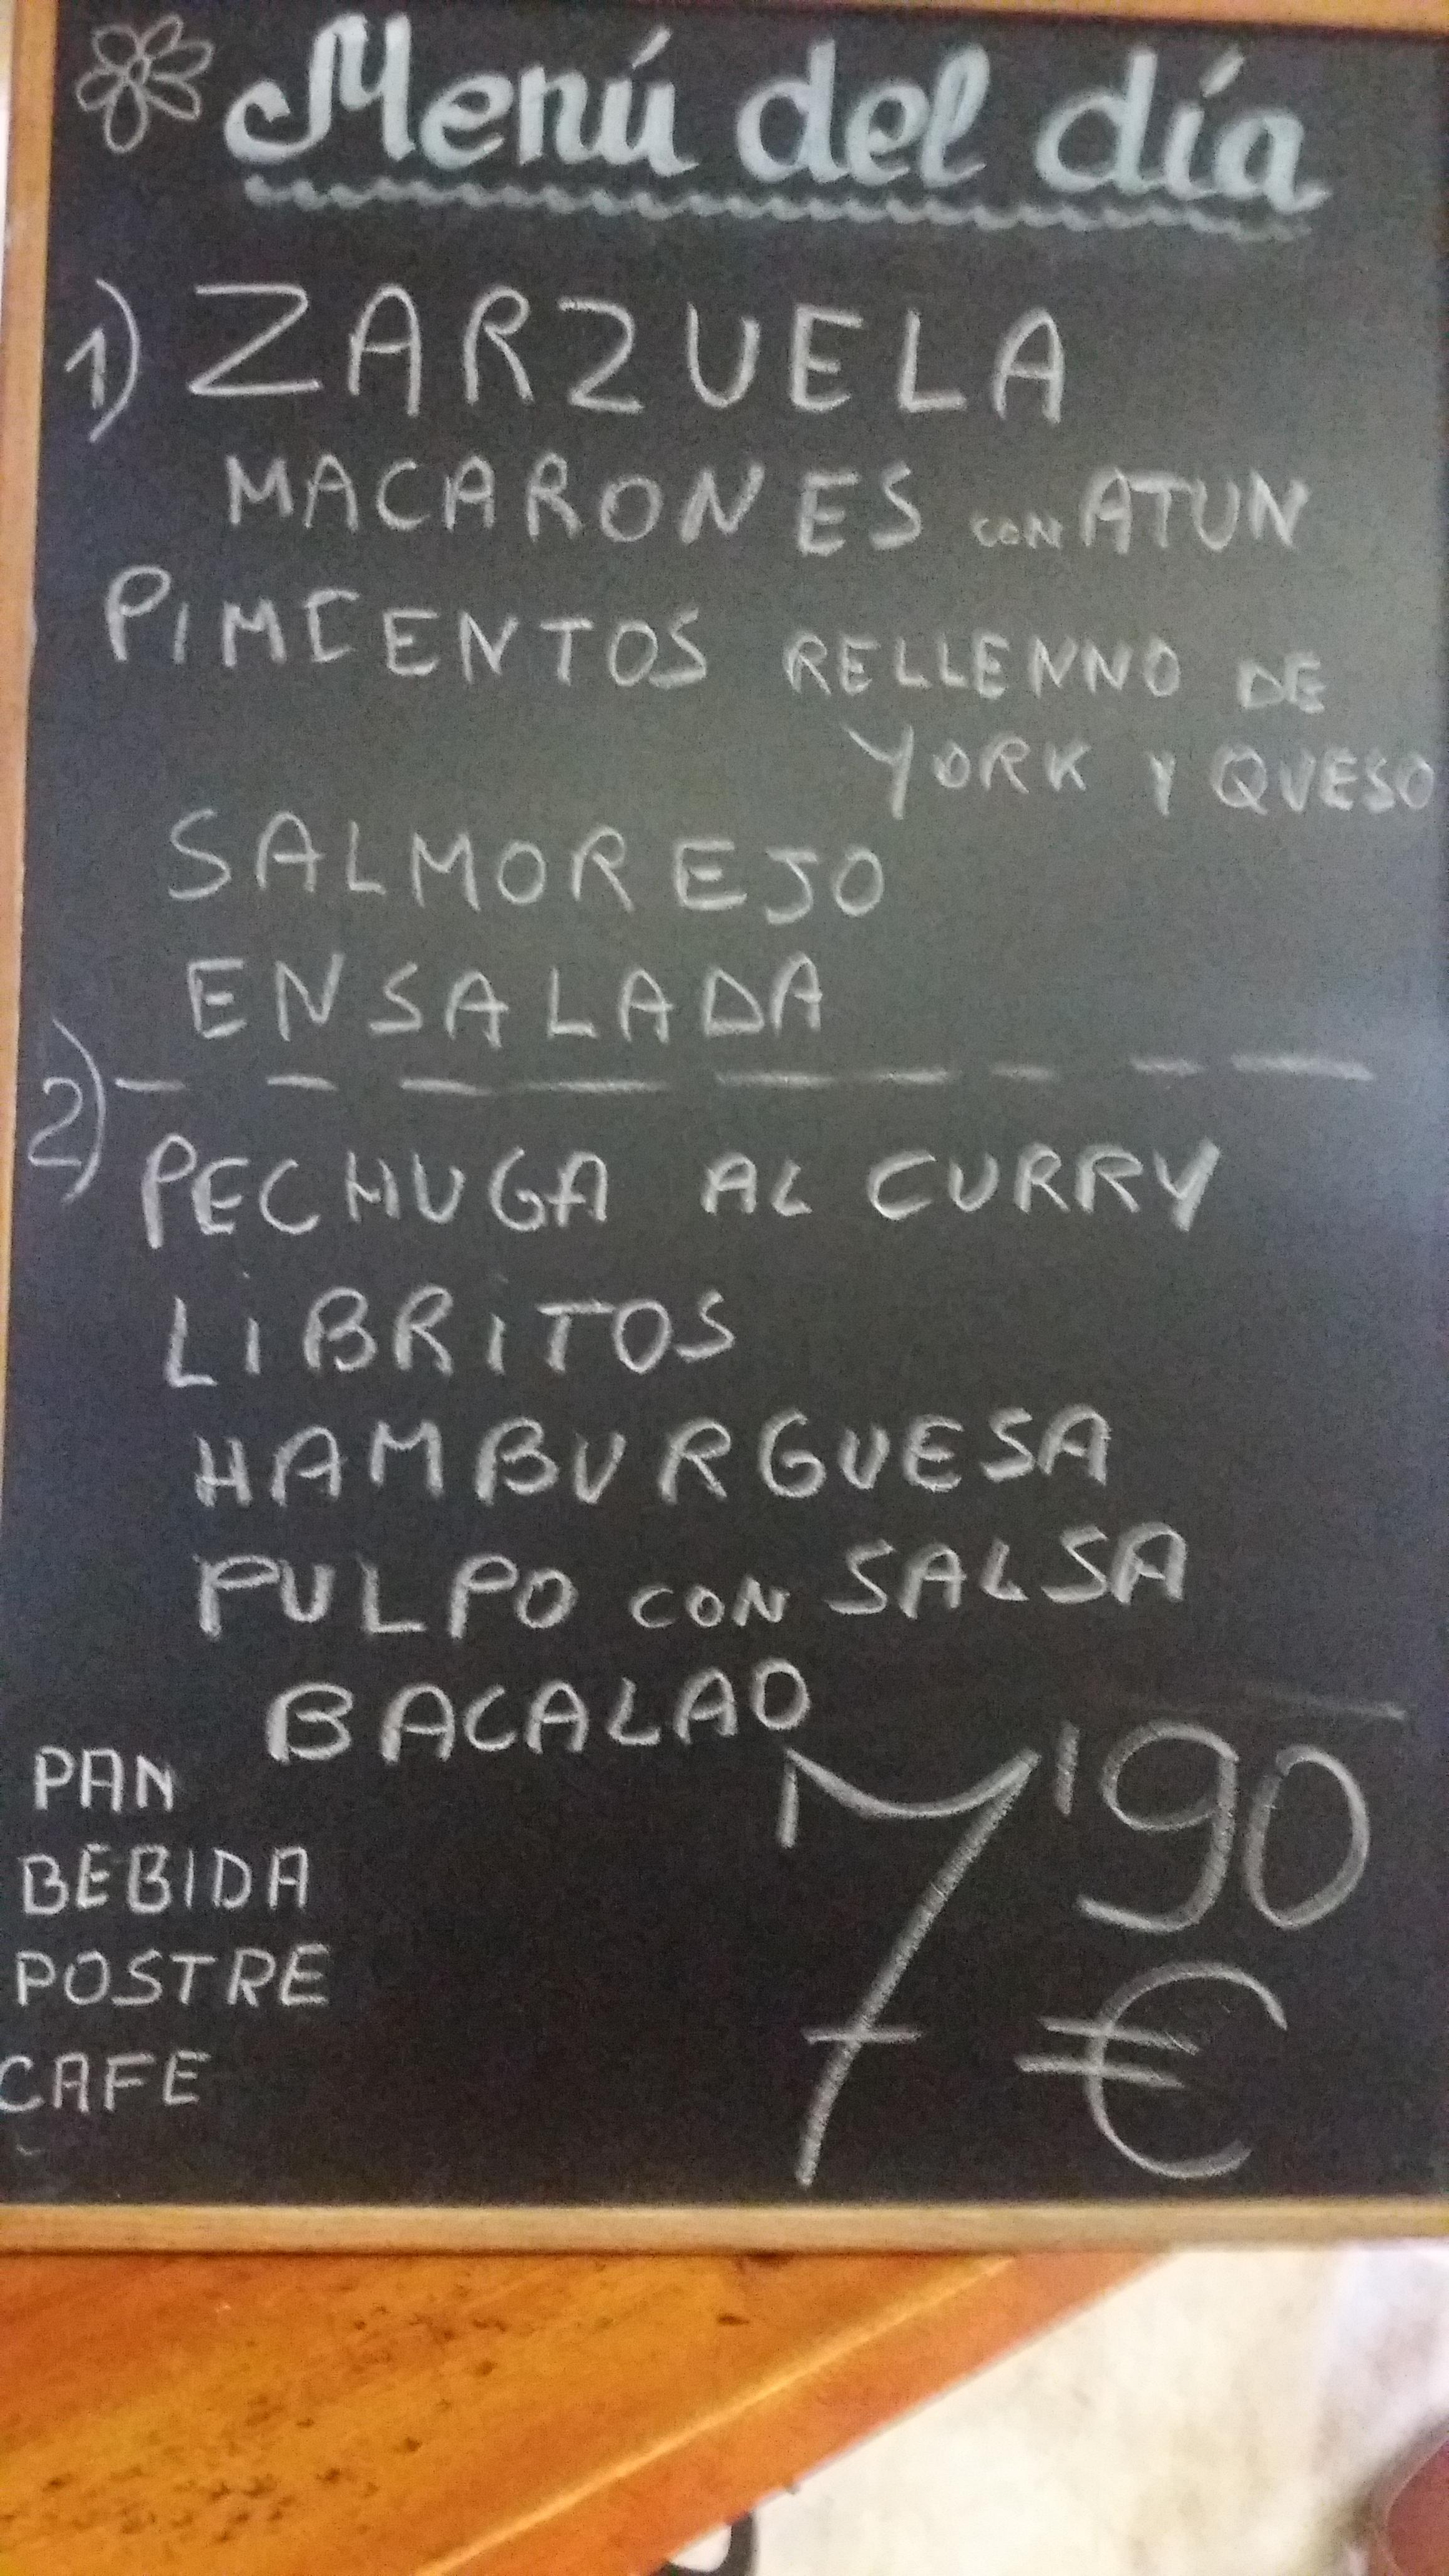 Menú del día
1) ZARZUELA
MACARONES CON ATUN
PIMIENTOS RELLENNO DE
YORK Y QUESO
SALMOREJO
ENSALADA
2)
PECHUGA AL CURRY
LiBRiTOS
HAMBURGUESA
PULPO CON SALSA
BACALAO
PAN
BEBIDA
POSTRE
CAFE
7'90
€